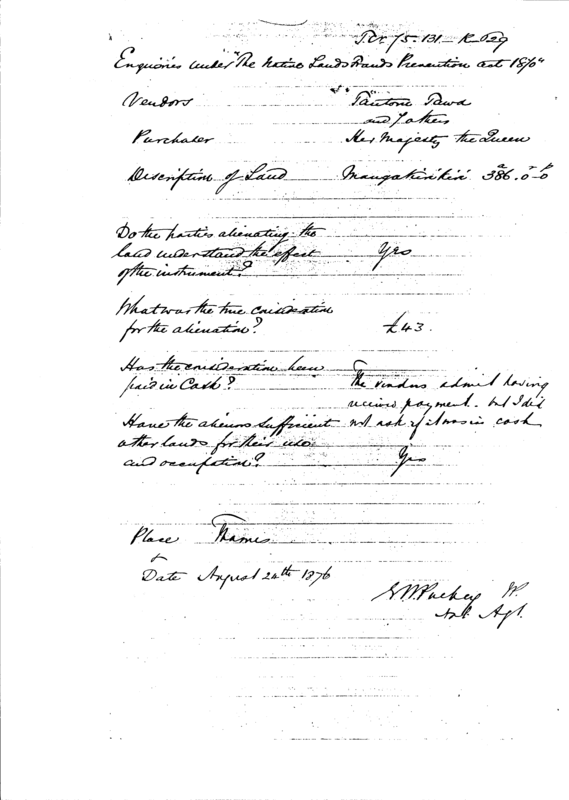 75.131
Enquiries under "The Native Lands Frauds Prevention act 1870"
Vendors
and others
Purchaser Her Majesty the Queen
Description of Land 386.0.0
Do the parties alienating the
land understand the effect Yes
of the instrument?
What was the true consideration
for the alienation? £43.
Has the consideration been
paid in Cash? The vendors admit having
received payment. but I did
Have the alienors sufficient not ask if it was in cash
other lands for their use Yes
and occupation?
Place Thames
Date August 24th 1876
E W Puckey
Agt.